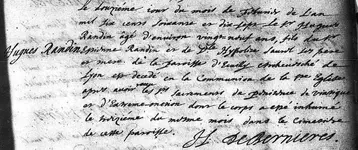 Le douzieme jour du mois de febvrier de l'an
mil six cens soixante et dix sept le Sr hugues
Hugues Randin
Randin âgé d'environ vingt neuf ans, fils du Sr
Randin et de Hypolite ses pere
et mere de la paroisse d'Emily Archevesché de
Lyon est decedé en la Communion de la Ste Eglise
aprez avoir les Sts Sacremens de Penitence de viatique
et d'Extreme-onction dont le corps a esté inhumé
le du mesme mois dans le Cimetiere
de cette paroisse.
H. de Bernieres.